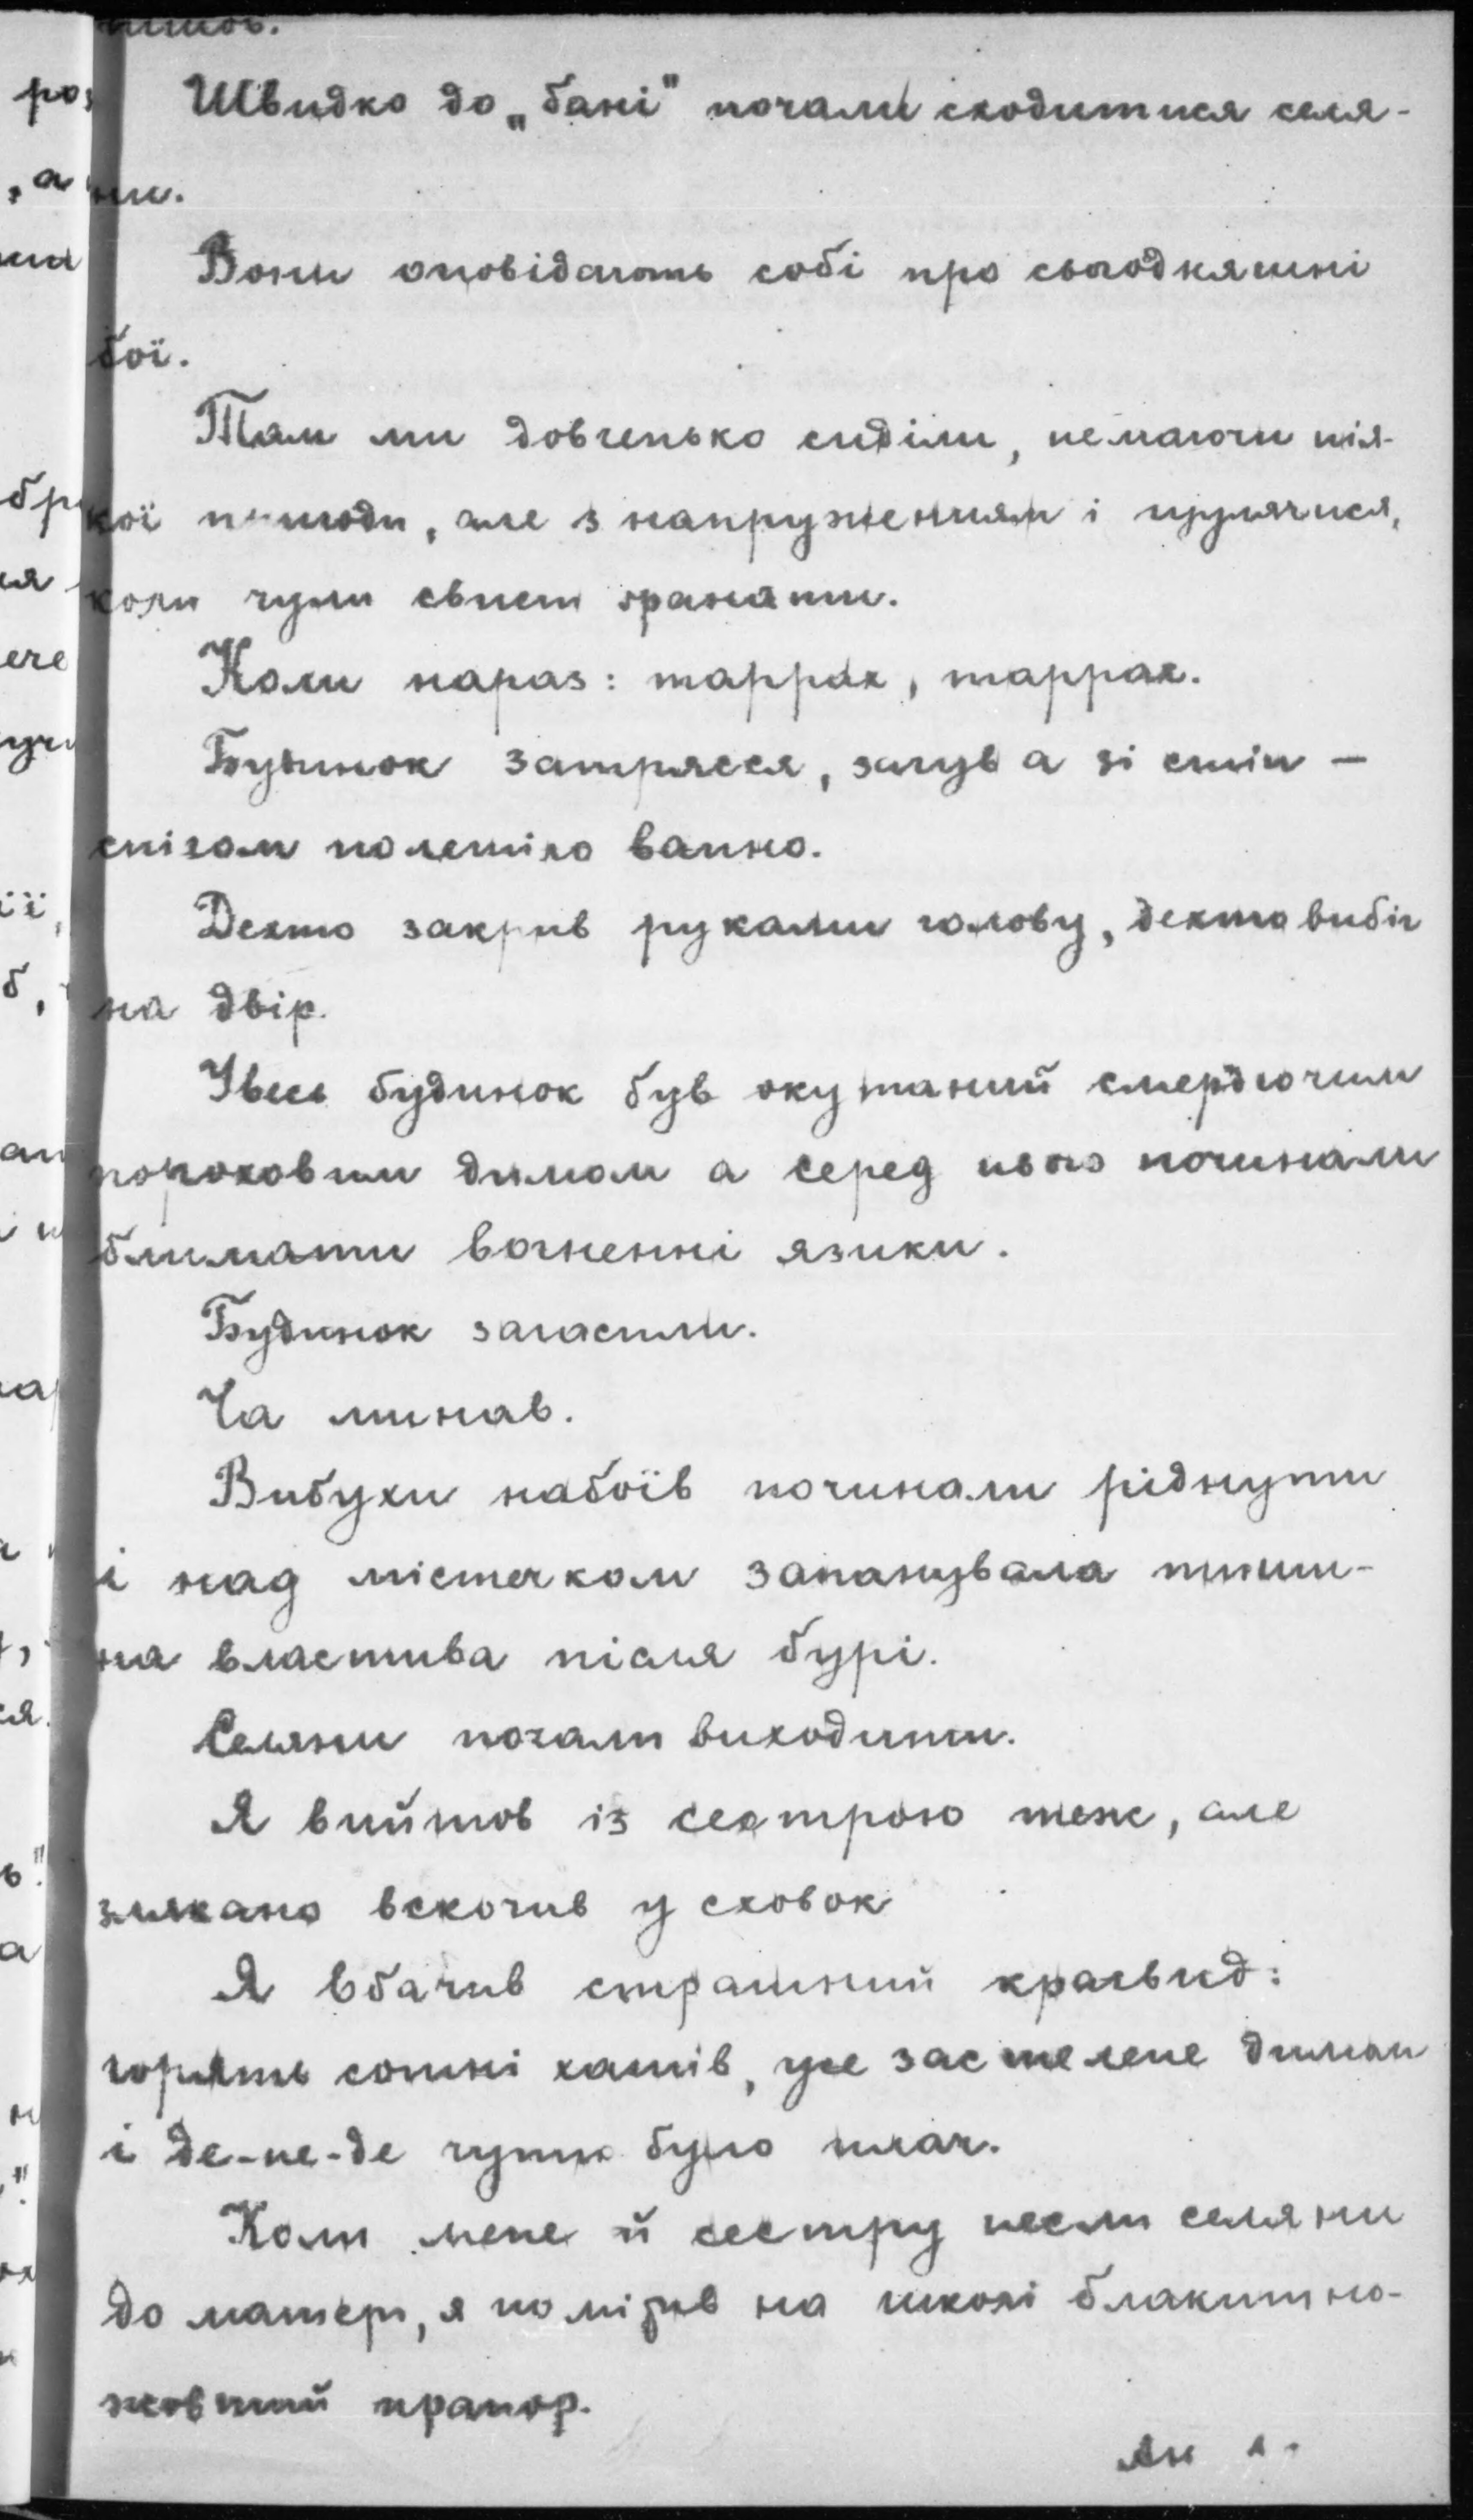 Швидко до „бані" почали сходитися селя-
ни.
Вони оповідають собі про сьогодняшні
бої.
Там ми довгенько сиділи, немаючи нія-
кої пригоди, але з напруженням і щулячися,
коли чули свист гранати.
Коли нараз: таррах, таррах.
Будинок затрясся, загув а зі стін —
снігом полетіло вапно.
Дехто закрив руками голову, дехто вибіг
на двір.
Увесь будинок був окутаний смердючим
пороховим димом а серед нього починали
блимати вогненні язики.
Будинок загасили.
Ча минав.
Вибухи набоїв починали ріднути
і над містечком запанувала тиши-
на властива після бурі.
Селяни почали виходити.
Я вийшов із сестрою теж, але
злякано вскочив у сховок
Я вбачив страшний краєвид:
горять сотні хатів, усе застелене димом
і де-не-де чутно було плач.
Коли мене й сестру несли селяни
до матері, я помітив на школі блакитно-
жовтий прапор.